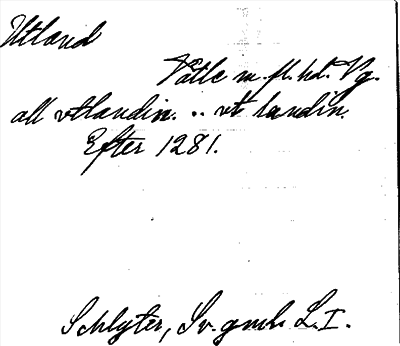 Utland
Vätle m. fl. hd. Vg.
all vtlandin. .. vt landin.
Efter 1281.
Schlyter, Sv. gmla L. I.